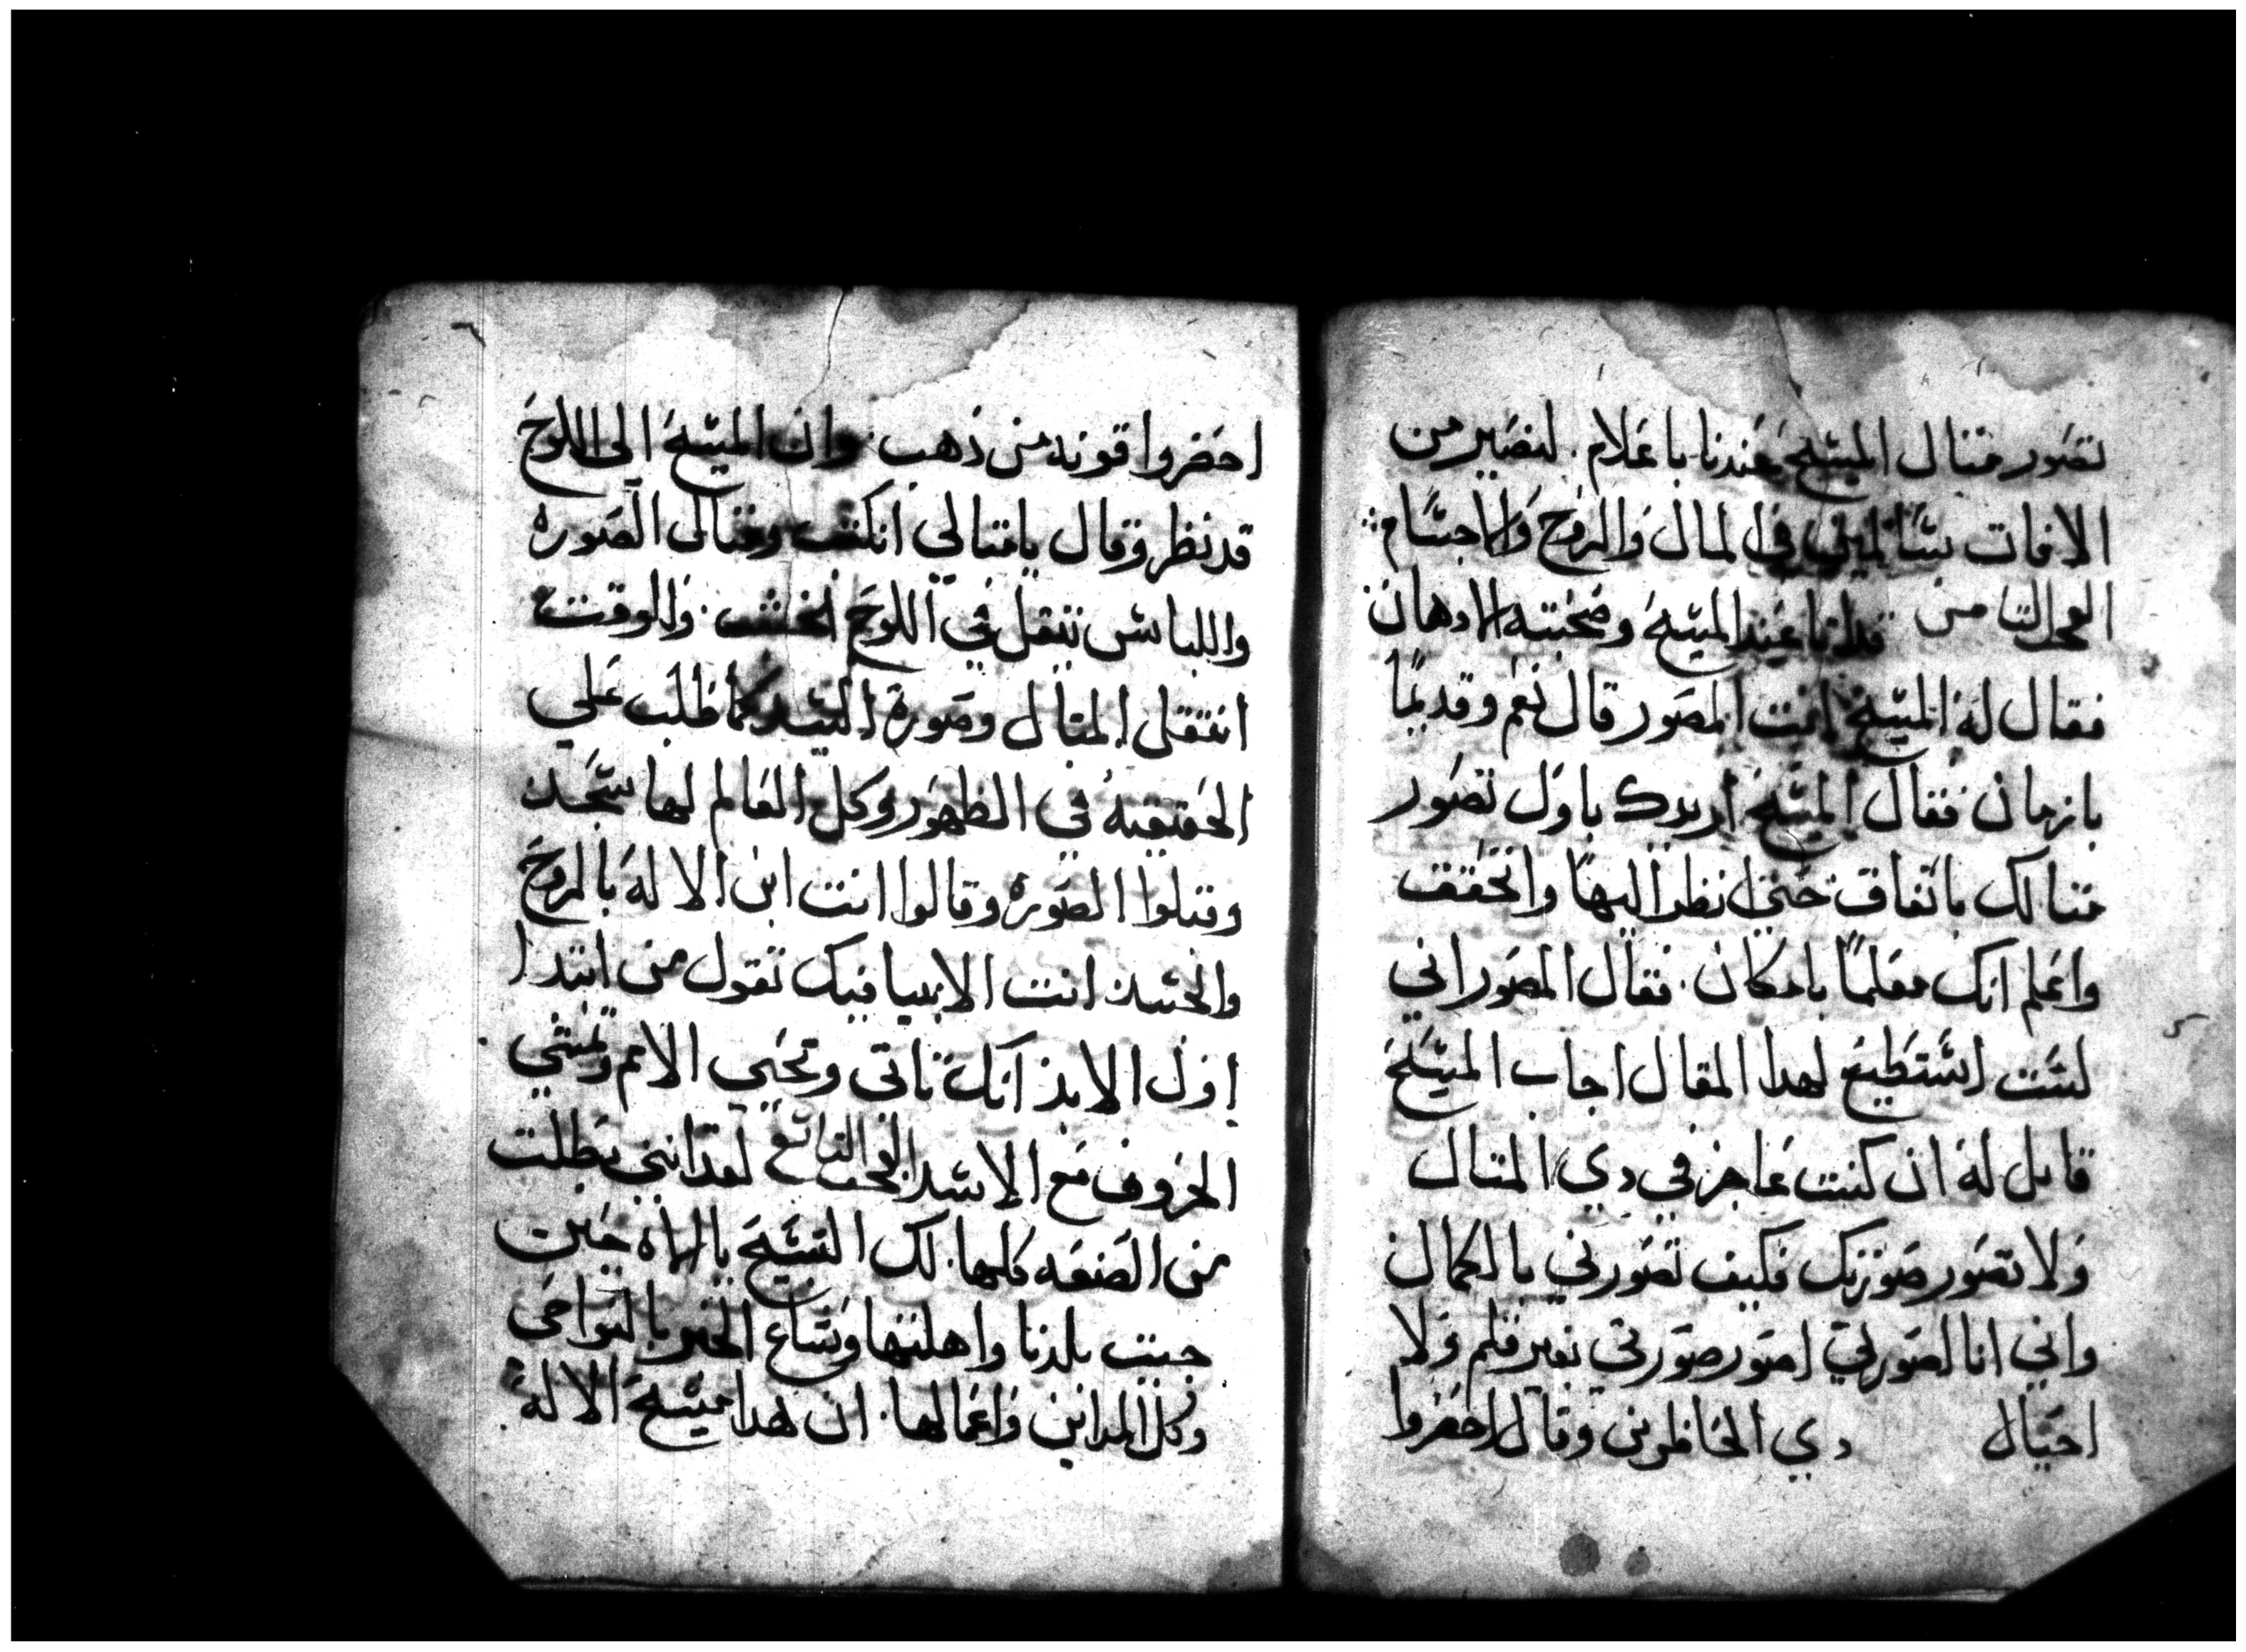 تصور متال المسيح عندنا باعلام. لنصير من
الافات سالمين في المال والروح والاجسام
الفحل التامن قد اتا عند المسيح وصحبته الادهان
فقال له المسيح انت المصور قال نعم وقديمًا
بازمان فقال المسيح اريدك باول تصور
متالك باتفاق حتي انظر اليها واتحقق
واعلم انك معلمًا بامكان. فقال المصور اني
لست استطيع لهدا المقال اجاب المسيح
قايل له ان كنت عاجز في دي المتال
ولا تصور صورتك فكيف تصورني بالكمال
واني انا لصورتي اصور صورتي بغير قلم ولا
احيال دي الحاظرين وقال احضروا
احضروا قونه من ذهب. وان المسيح الى اللوح
قد نظر وقال يا متالي انكتب ومتالى الصوره
واللباس تنقل في اللوح الخشب. والوقت
انتقلى المتال وصورة السيد كما طلب علي
الحقيقيه في الظهور وكل العالم لها سجد
وقبلوا الصوره وقالوا انت ابن الالاله بالروح
والجسد انت الانبيا فيك تقول من ابتدا
اول الابد انك تاتي وتحيي الامم وتمشي
الخروف مع الاسد الفحل التاسع لقد انني بطلت
من الصنعه كلها. لك التسبيح يا الله حين
جيت بلدنا واهلتها وشاع الخبر بالنواحي
وكل المداين واعمالها. ان هدا مسيح الالاله